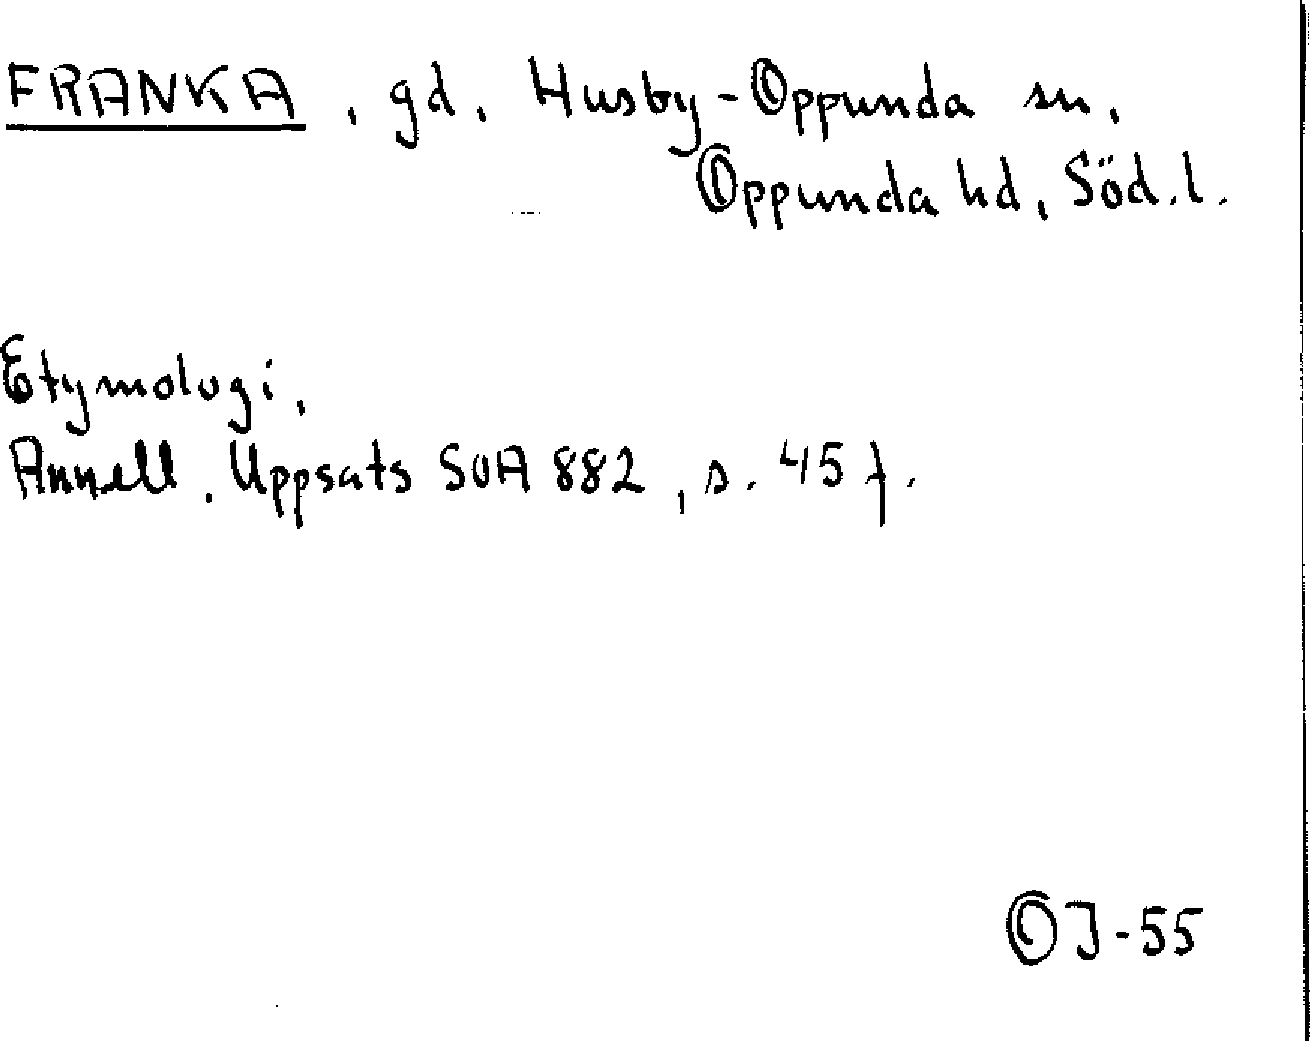 FRANKA, gd, Husby-Oppunda sn,
Oppunda hd, Söd.l.
Etymologi,
Annell. Uppsats SOA 882, s. 45 f.
OJ-55